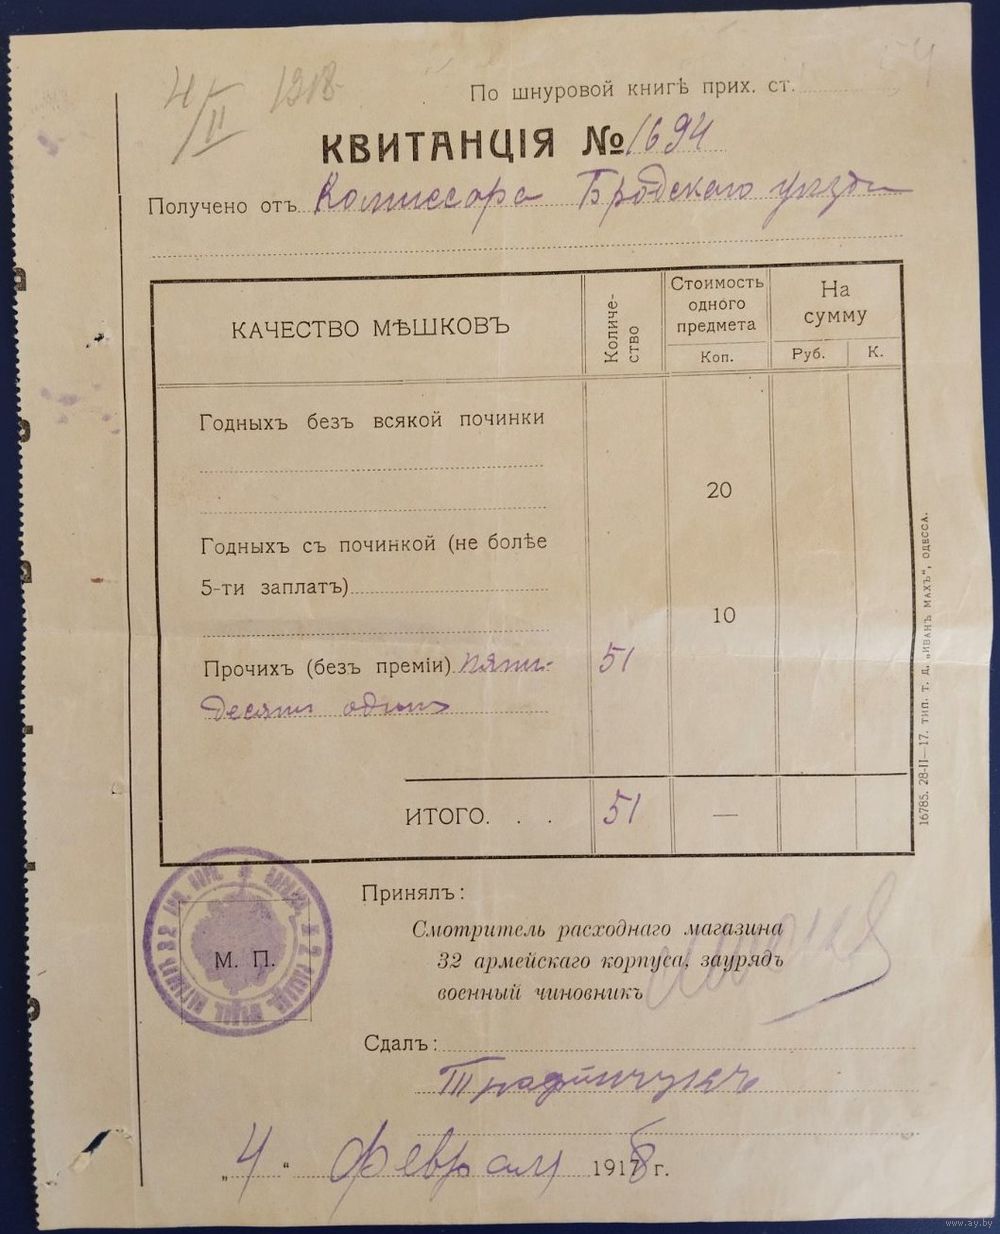 4/II 1918
По шнуровой книгѣ прих. ст.
КВИТАНЦІЯ № 1694
Получено отъ Комиссара Бродскаго уѣзда
КАЧЕСТВО МѢШКОВЪ
Количе-
ство
Стоимость
одного
предмета
Коп.
На
сумму
Руб. К.
Годныхъ безъ всякой починки
20
Годныхъ съ починкой (не болѣе
5-ти заплатъ)
10
Прочихъ (безъ преміи) пяти- 51
десяти одинъ
ИТОГО. . . 51 —
16785. 28-II—17. тип. т. д. „ИВАНЪ МАХЪ", ОДЕССА.
Принялъ:
М. П.
Смотритель расходнаго магазина
32 армейскаго корпуса, заурядъ
военный чиновникъ
Сдалъ:
„4" Февраля 1918 г.
www.ay.by